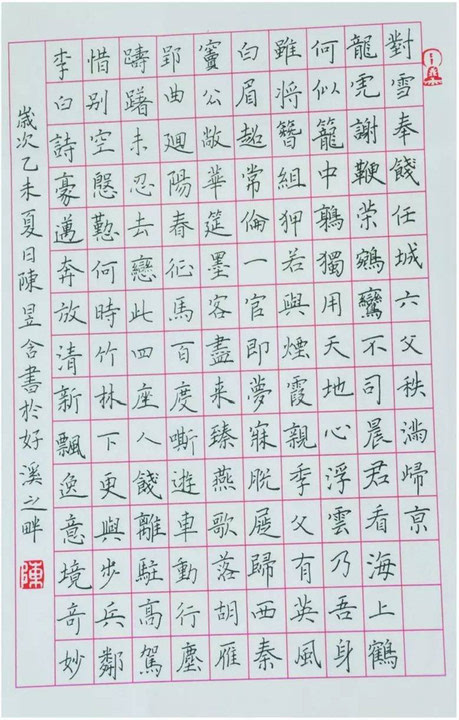 對雪奉餞任城六父秩滿歸亰
龍虎謝鞭榮鵷鸞不司晨君看海上鶴
何似籠中鶉獨用天地心浮雲乃吾身
雖將簪組狎若與煙霞親季父有英風
白眉超常倫一官即夢寐脫屣歸西秦
竇公敞華筵墨客盡來臻燕歌落胡雁
郢曲廻陽春征馬百度嘶遊車動行塵
躊躇未忍去戀此四座人餞離駐高駕
惜别空慇懃何時竹林下更與步兵鄰
李白詩豪邁奔放清新飄逸意境奇妙
歲次乙未夏日陳昱含書於好溪之畔
陳